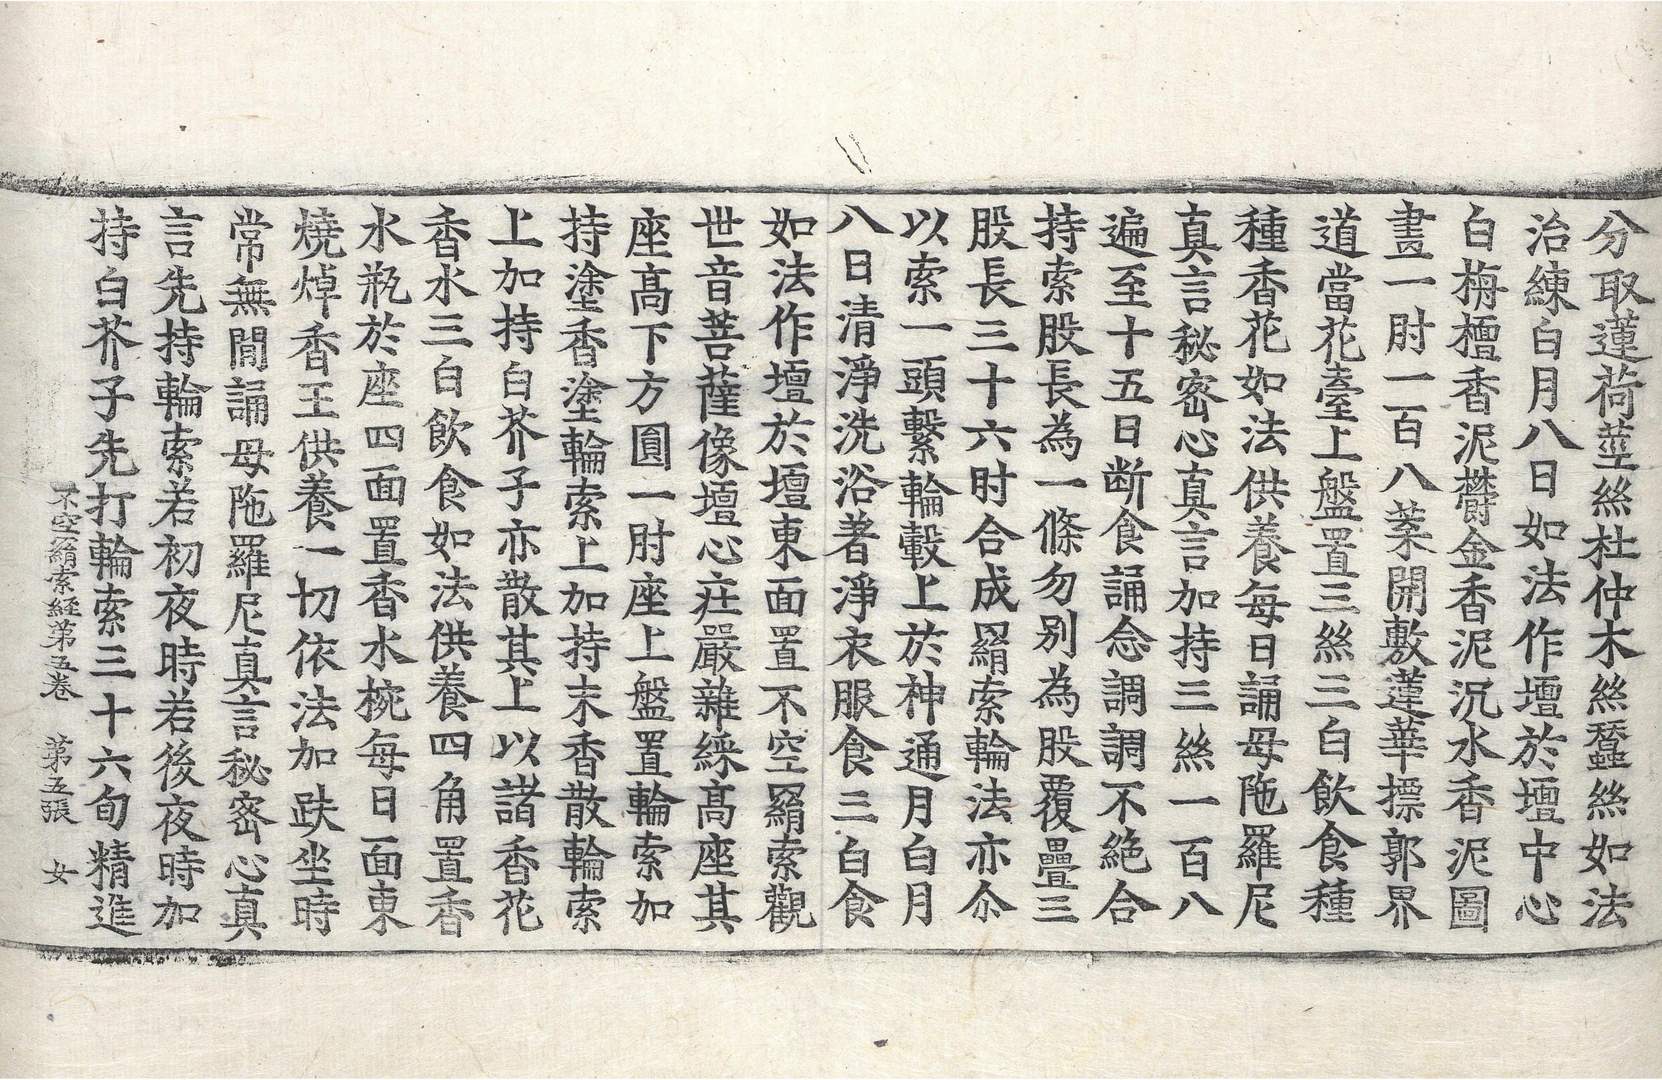 分取蓮荷莖絲杜仲木絲蠶絲如法
治練白月八日如法作壇於壇中心
白栴檀香泥欝金香泥沉水香泥圖
畫一肘一百八葉開敷蓮華摽郭界
道當花臺上盤置三絲三白飲食種
種香花如法供養每日誦母陁羅尼
真言秘密心真言加持三絲一百八
遍至十五日断食誦念調調不絶合
持索股長為一條勿别為股覆疊三
股長三十六肘合成羂索輪法亦尒
以索一頭繫輪轂上於神通月白月
八日清淨洗浴著淨衣服食三白食
如法作壇於壇東面置不空羂索觀
世音菩薩像壇心庄嚴雜綵髙座其
座髙下方圓一肘座上盤置輪索加
持塗香塗輪索上加持末香散輪索
上加持白芥子亦散其上以諸香花
香水三白飲食如法供養四角置香
水瓶於座四面置香水椀每日面東
燒焯香王供養一切依法加趺坐時
常無閒誦母陁羅尼真言秘密心真
言先持輪索若初夜時若後夜時加
持白芥子先打輪索三十六旬精進
不空羂索經第五卷 第五張 女